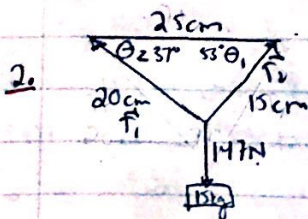 25cm
2. θ=37° 53°θ₁
20cm F₂ 15cm
F₁
147N
15kg